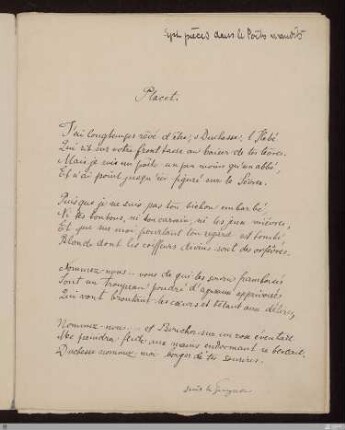 Sept pièces dans les Poètes maudits
Placet.
J'ai longtemps rêvé d'être, ô Duchesse, l'Hébé
Qui rit sur votre front tasse au baiser de tes lèvres.
Mais je suis un poëte un peu moins qu'un abbé,
Et n'ai point jusqu'ici figuré sur le Sèvres.
Puisque je ne suis pas ton bichon embarbé
Ni tes bonbons, ni ton carmin, ni les jeux mièvres,
Et que sur moi pourtant ton regard est tombé
Blonde dont les coiffeurs divins sont des orfèvres,
Nommez-nous... vous de qui les souris framboisés
Sont un troupeau poudré d'agneaux apprivoisés
Qui vont broutant les cœurs et bêlant aux délires,
Nommez-nous... et Boucher sur un rose éventail
Me peindra flûte aux mains endormant ce bercail,
Duchesse nommez moi berger de tes sourires.